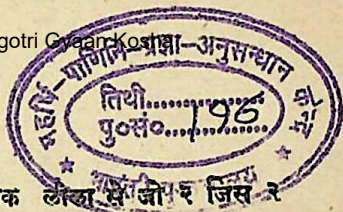 gotri Gyaan Kosha
महर्षि-पाणिनि-प्रज्ञा-अनुसन्धान केन्द्र
तिथी..............
पु०सं०......196......
क लीला से जो २ जिस २